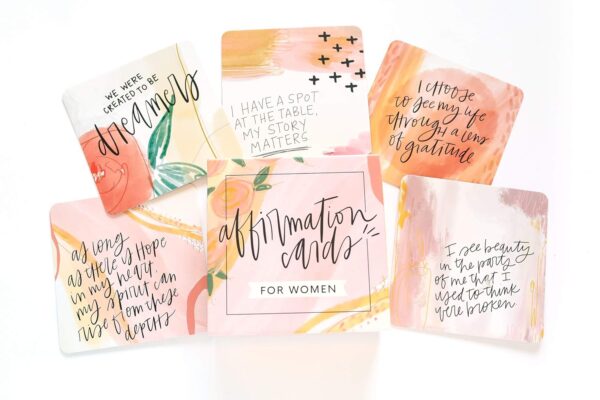 WE WERE
CREATED TO BE
dreamers
I HAVE A SPOT
AT THE TABLE,
MY STORY
MATTERS
I choose
to see my life
through a lens
of gratitude
as long
as there is hope
in my heart,
my spirit can
rise from these
depths
affirmation
cards
FOR WOMEN
I see beauty
in the parts
of me that I
used to think
were broken